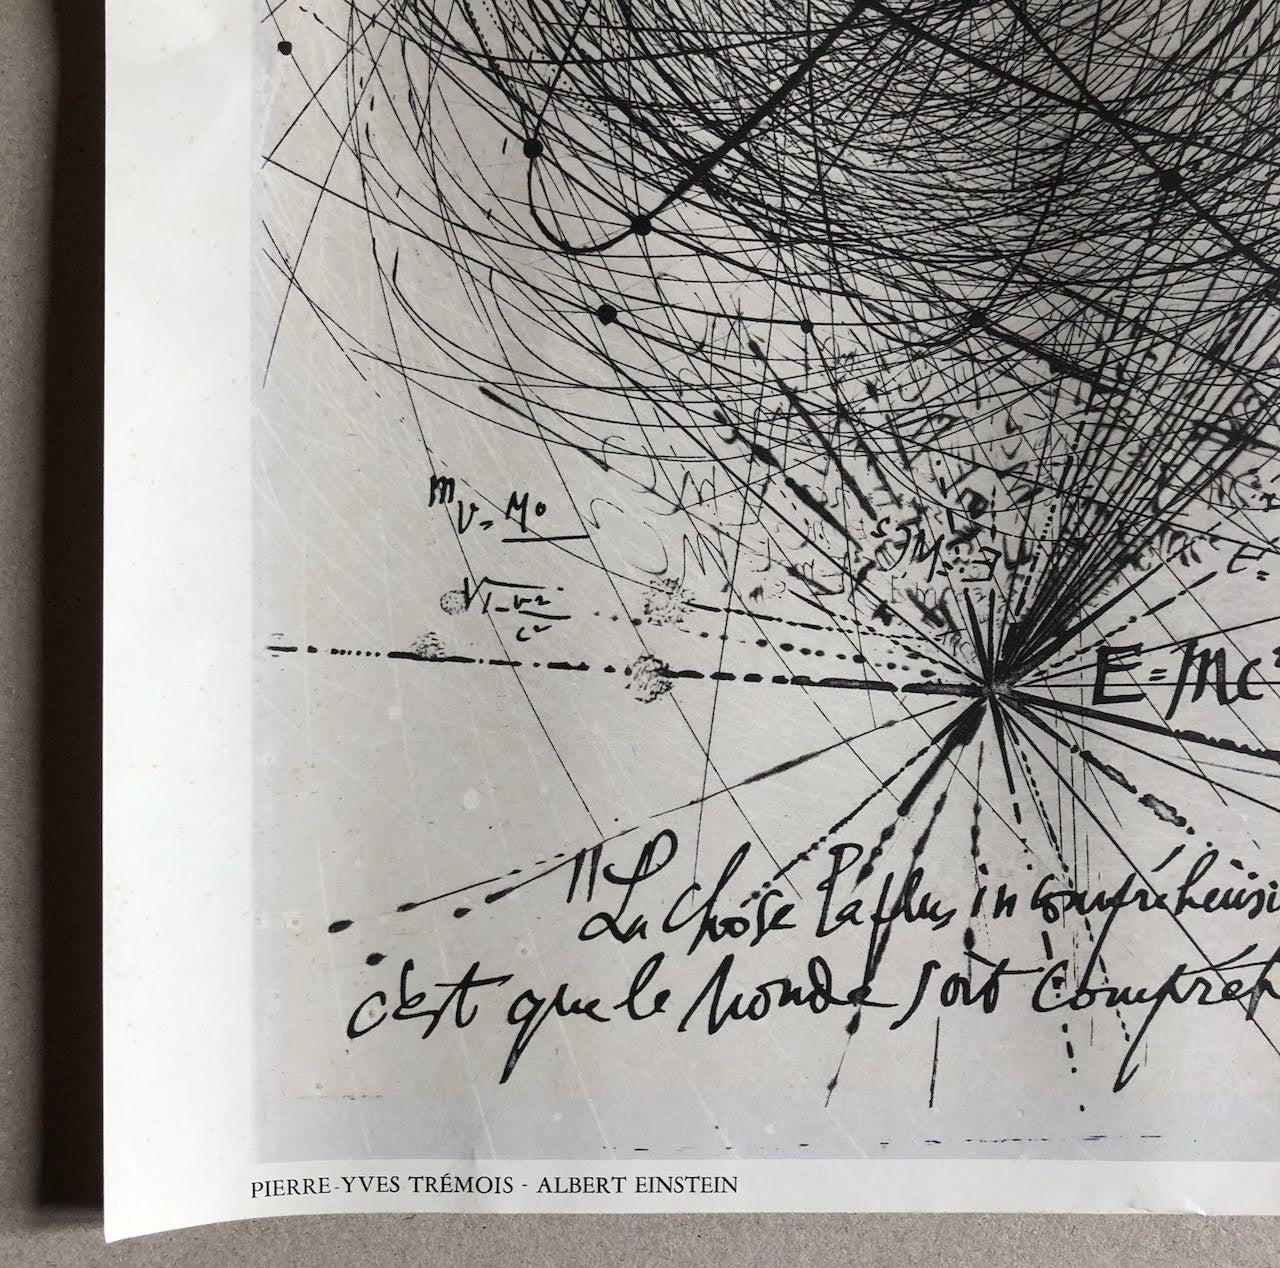 mv = M0
√1-v²
c²
E=Mc²
"La chose la plus incompréhensi
c'est que le monde soit compréh
PIERRE-YVES TRÉMOIS - ALBERT EINSTEIN